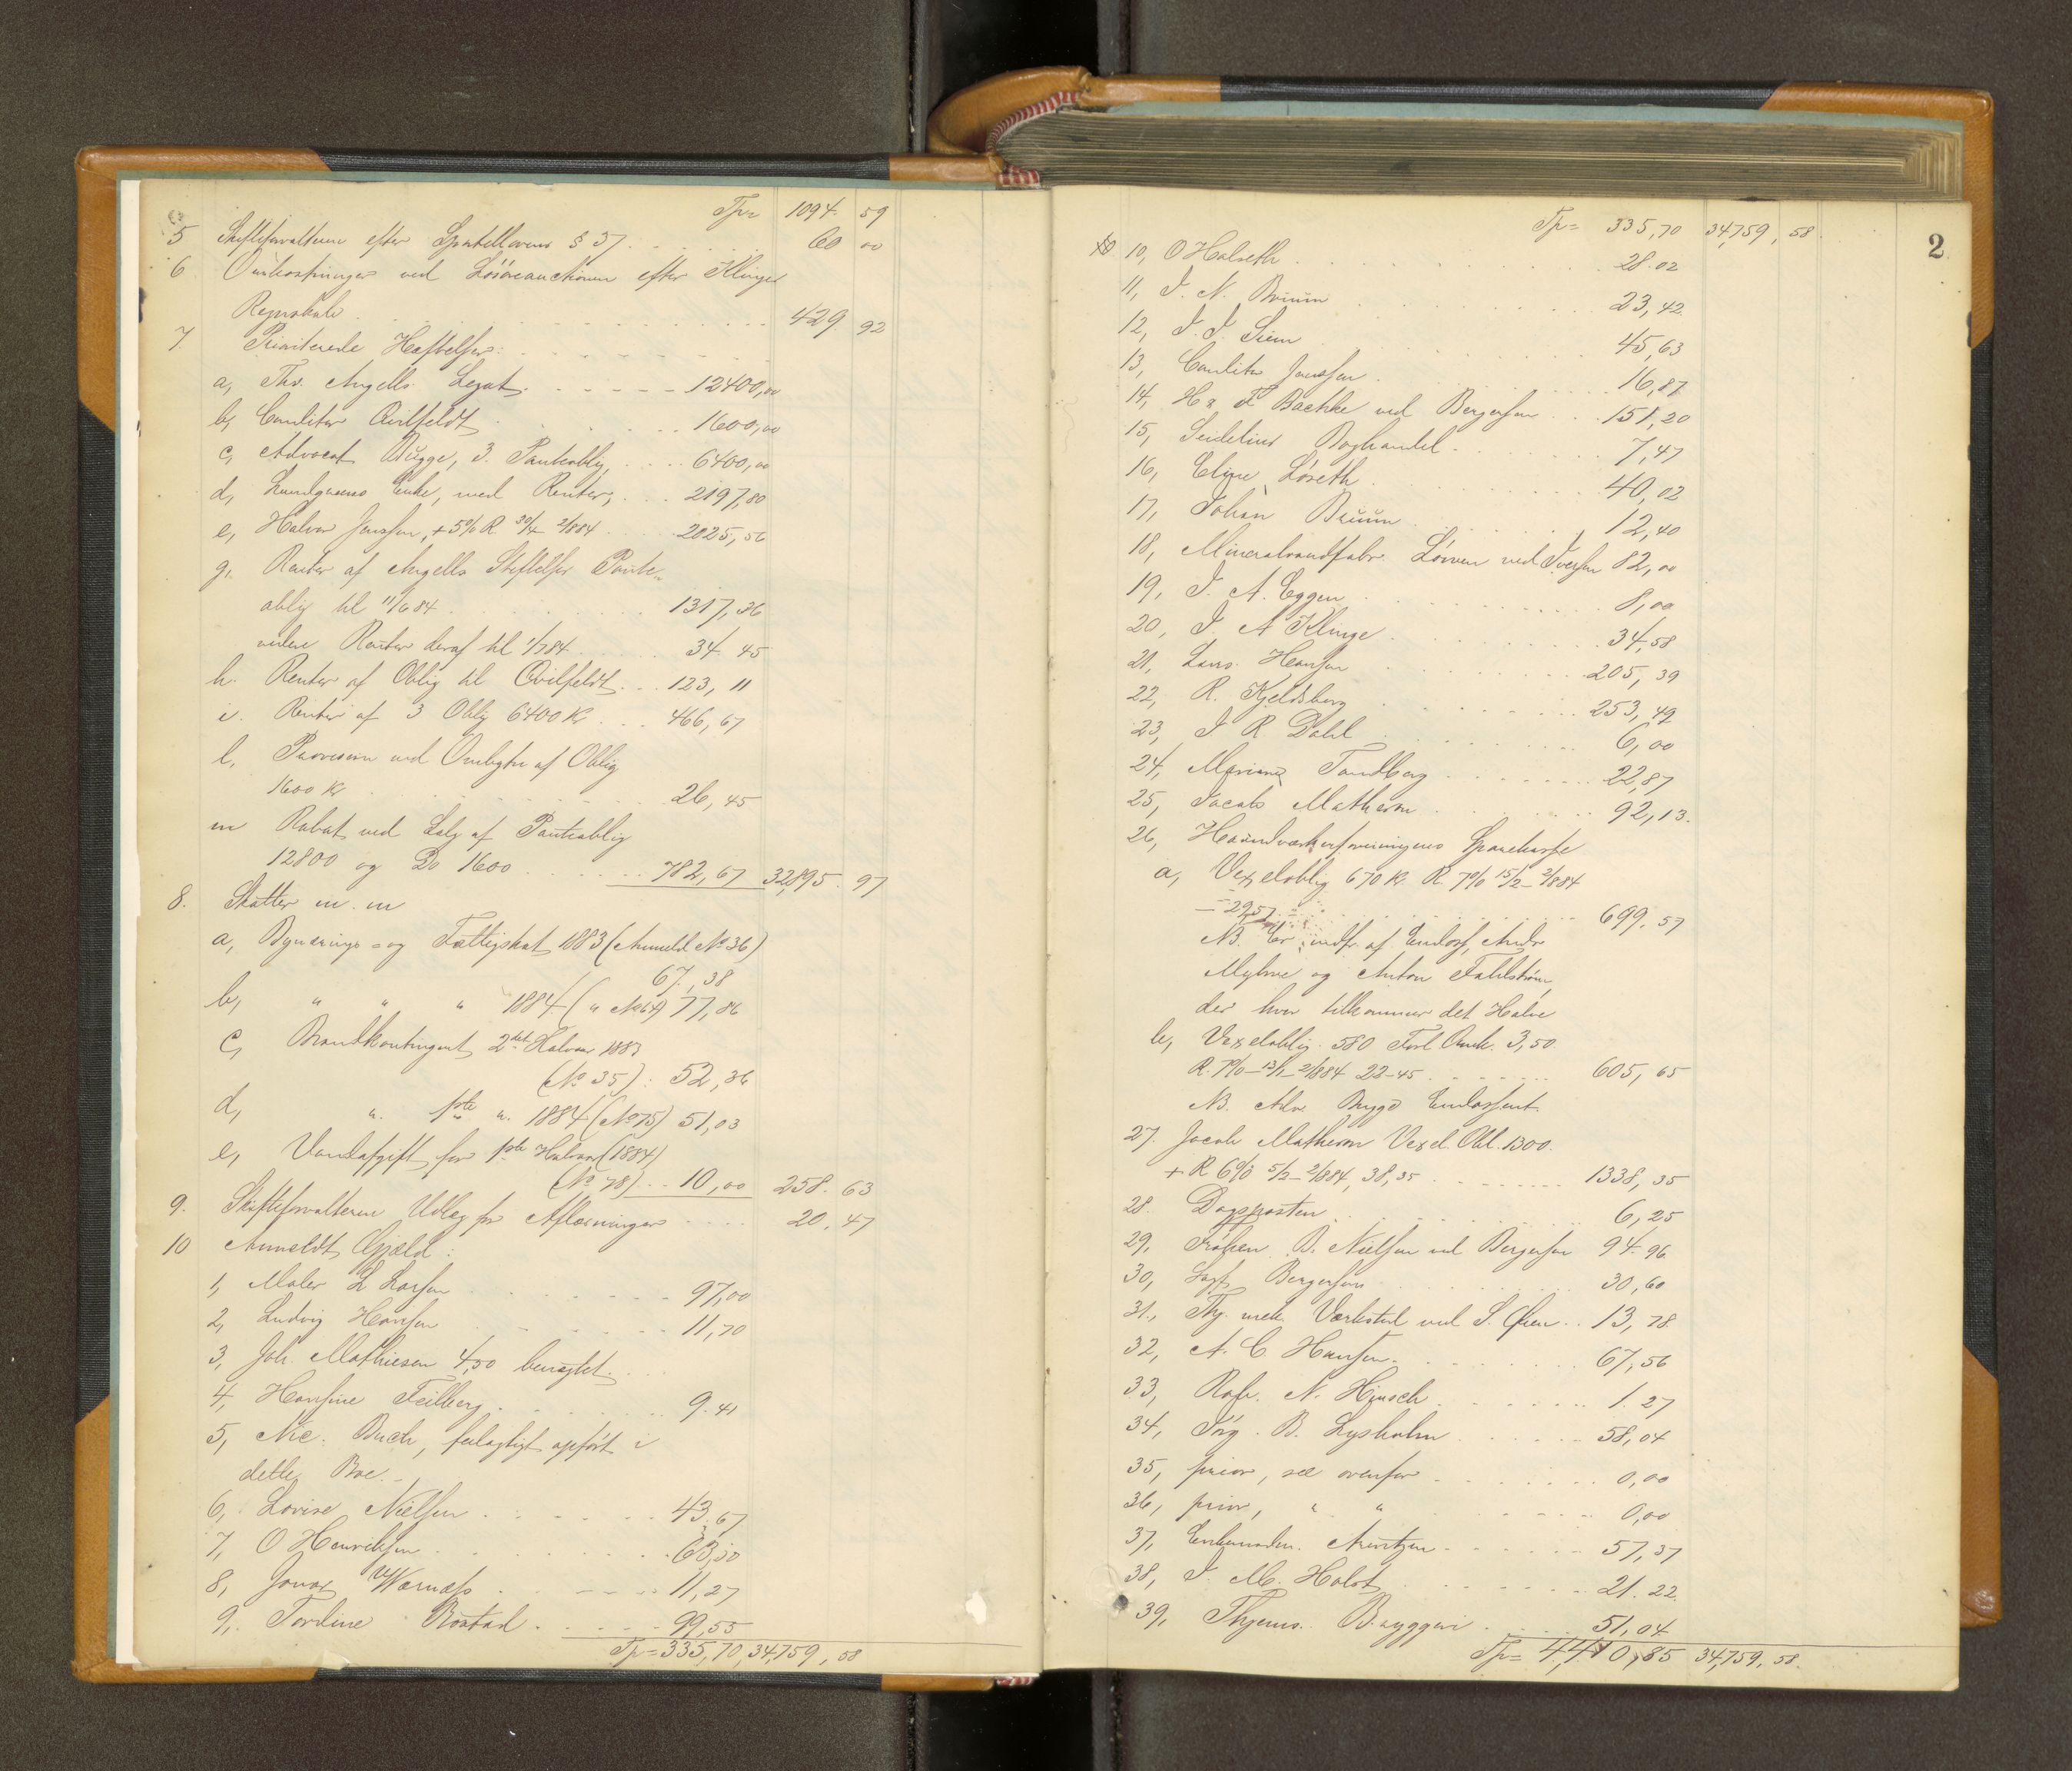 Tp= 1094. 59
5 Skifteforvalteren efter Sportellovens § 37 60 00
6 Omkostninger ved Løsøreauctionen efter Klinges
Regnskab 429 92
7. Prioriterede Hæftelser:
a, Ths. Angells Legat 12400,00
b, Conditor Qvilfeldt 1600,00
c, Advocat Bugge, 3. Panteoblig, 6400,00
d, Lundgreens Enke, med Renter, 2197,80
e, Halvor Jenssen, + 5% R 30/4 2/8 84 2025,56
g, Renter af Angells Stiftelser Pante-
oblig til 11/6 84 1317,36
videre Renter deraf til 1/7 84 34. 45
h. Renter af Oblig til Qvilfeldt 123, 11
i. Renter af 3 Oblig 6400 Kr 466,67
l, Provision ved Ombytn af Oblig
1600 Kr 26,45
m Rabat ved Salg af Panteoblig
12800 og Do 1600 782,67 32,895. 97
8. Skatter m. m
a, Bynærings- og Fattigskat 1883 (Anmeld. No 36)
67,38
b, " " " 1884 ( " No 64) 77,86
c, Brandkontingent 2det Halvaar 1883
(No 35): 52,36
d, " 1ste " 1884 (No 75) 51,03
e, Vandafgift for 1ste Halvaar (1884)
(No 78) 10,00 258. 63
9. Skifteforvalteren Udlæg for Aflæsninger 20. 47
10 Anmeldt Gjæld:
1, Maler L Larsen 97,00
2, Ludvig Hansen 11,70
3, Joh. Mathiesen 4,50 benægtet.
4, Hansine Feilberg 9. 41
5, Nic. Buch, feilagtigt opført i
dette Boe.
6, Lovise Nielsen 43,67
7, O Henriksen 63,50
8, Jonas Wærnæss 11,27
9, Tordine Rostad 99,55
Tp= 335,70, 34,759, 58
2
Tp= 335,70 34,759, 58
10, O Halseth 28. 02
11, J. N. Bruun 23,42
12, J. J. Siem 45,63
13, Conditor Jenssen 16,87
14, H & F Bachke ved Bergersen 151,20
15, Seidelius Boghandel 7,47
16, Eline Løseth 40,02
17, Johan Bruun 12,40
18, Mineralvandfabr. Løwen ved Iversen 82,00
19, J. A. Eggen 8,00
20, J. A Klinge 34,58
21, Lars Hansen 205,39
22, R. Kjeldsberg 253,49
23, J R Dahl 6,00
24, Mariane Tandberg 22,87
25, Jacob Matheson 92,13.
26, Haandværkerforeningens Sparekasse
a, Vexeloblig 670 Kr R. 7% 15/2 - 2/8 84
= 29,57 = 699. 57
NB. Er indfr. af Endoss, Andr
Myhre og Anton Fahlstrøm,
der hver tilkommer det Halve
b, Vexeloblig. 580 Prot. Omk. 3,50.
R. 7% - 13/1 - 2/8 84 22-45 605,65
NB. Adv. Bugge Endossent
27. Jacob Matheson Vexel. Obl. 1300.
+ R 6% 5/2 - 2/8 84, 38,35 1338,35
28. Dagsposten 6,25
29, Frøken B. Nielsen ved Bergersen 94. 96
30, Sagf. Bergersen 30,60
31, Thj. mek. Værksted ved S. Øien 13,78
32, A. C Hansen 67,56
33, N. Hirsch 1. 27
34, Jørg. B. Lysholm 58,04
35, prior, see ovenfor 0,00
36, prior, " " 0,00
37, Enkemadm. Arentzen 57,37
38, J. M. Holst 21. 22.
39, Thjems. Bryggeri 51,04
Tp= 4,410,85 34,759. 58.